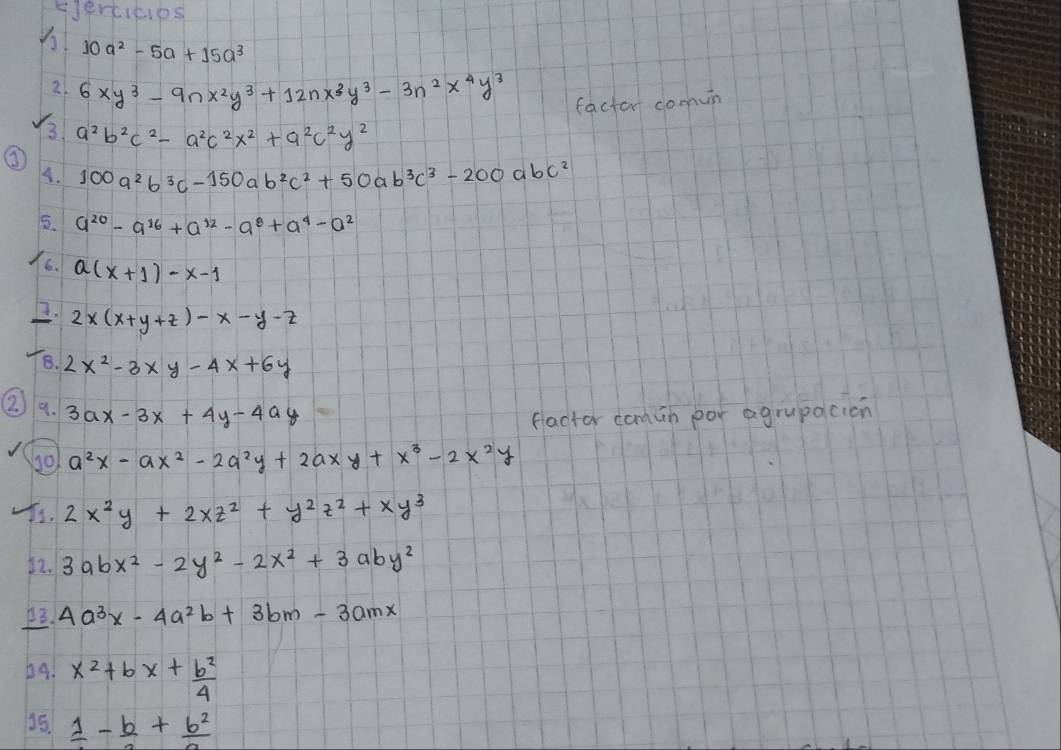 Ejercicios
1. 10a² - 5a + 15a³
2. 6xy³ - 9nx²y³ + 12nx³y³ - 3n²x⁴y³
factor común
3. a²b²c² - a²c²x² + a²c²y²
① 4. 100a²b³c - 150ab²c² + 50ab³c³ - 200abc²
5. a²⁰ - a¹⁶ + a¹² - a⁸ + a⁴ - a²
6. a(x+1) - x - 1
7. 2x(x+y+z) - x - y - z
8. 2x² - 3xy - 4x + 6y
② 9. 3ax - 3x + 4y - 4ay
factor común por agrupación
10. a²x - ax² - 2a²y + 2axy + x³ - 2x²y
11. 2x²y + 2xz² + y²z² + xy³
12. 3abx² - 2y² - 2x² + 3aby²
13. 4a³x - 4a²b + 3bm - 3amx
14. x² + bx + b²/4
15. 1 - b + b²